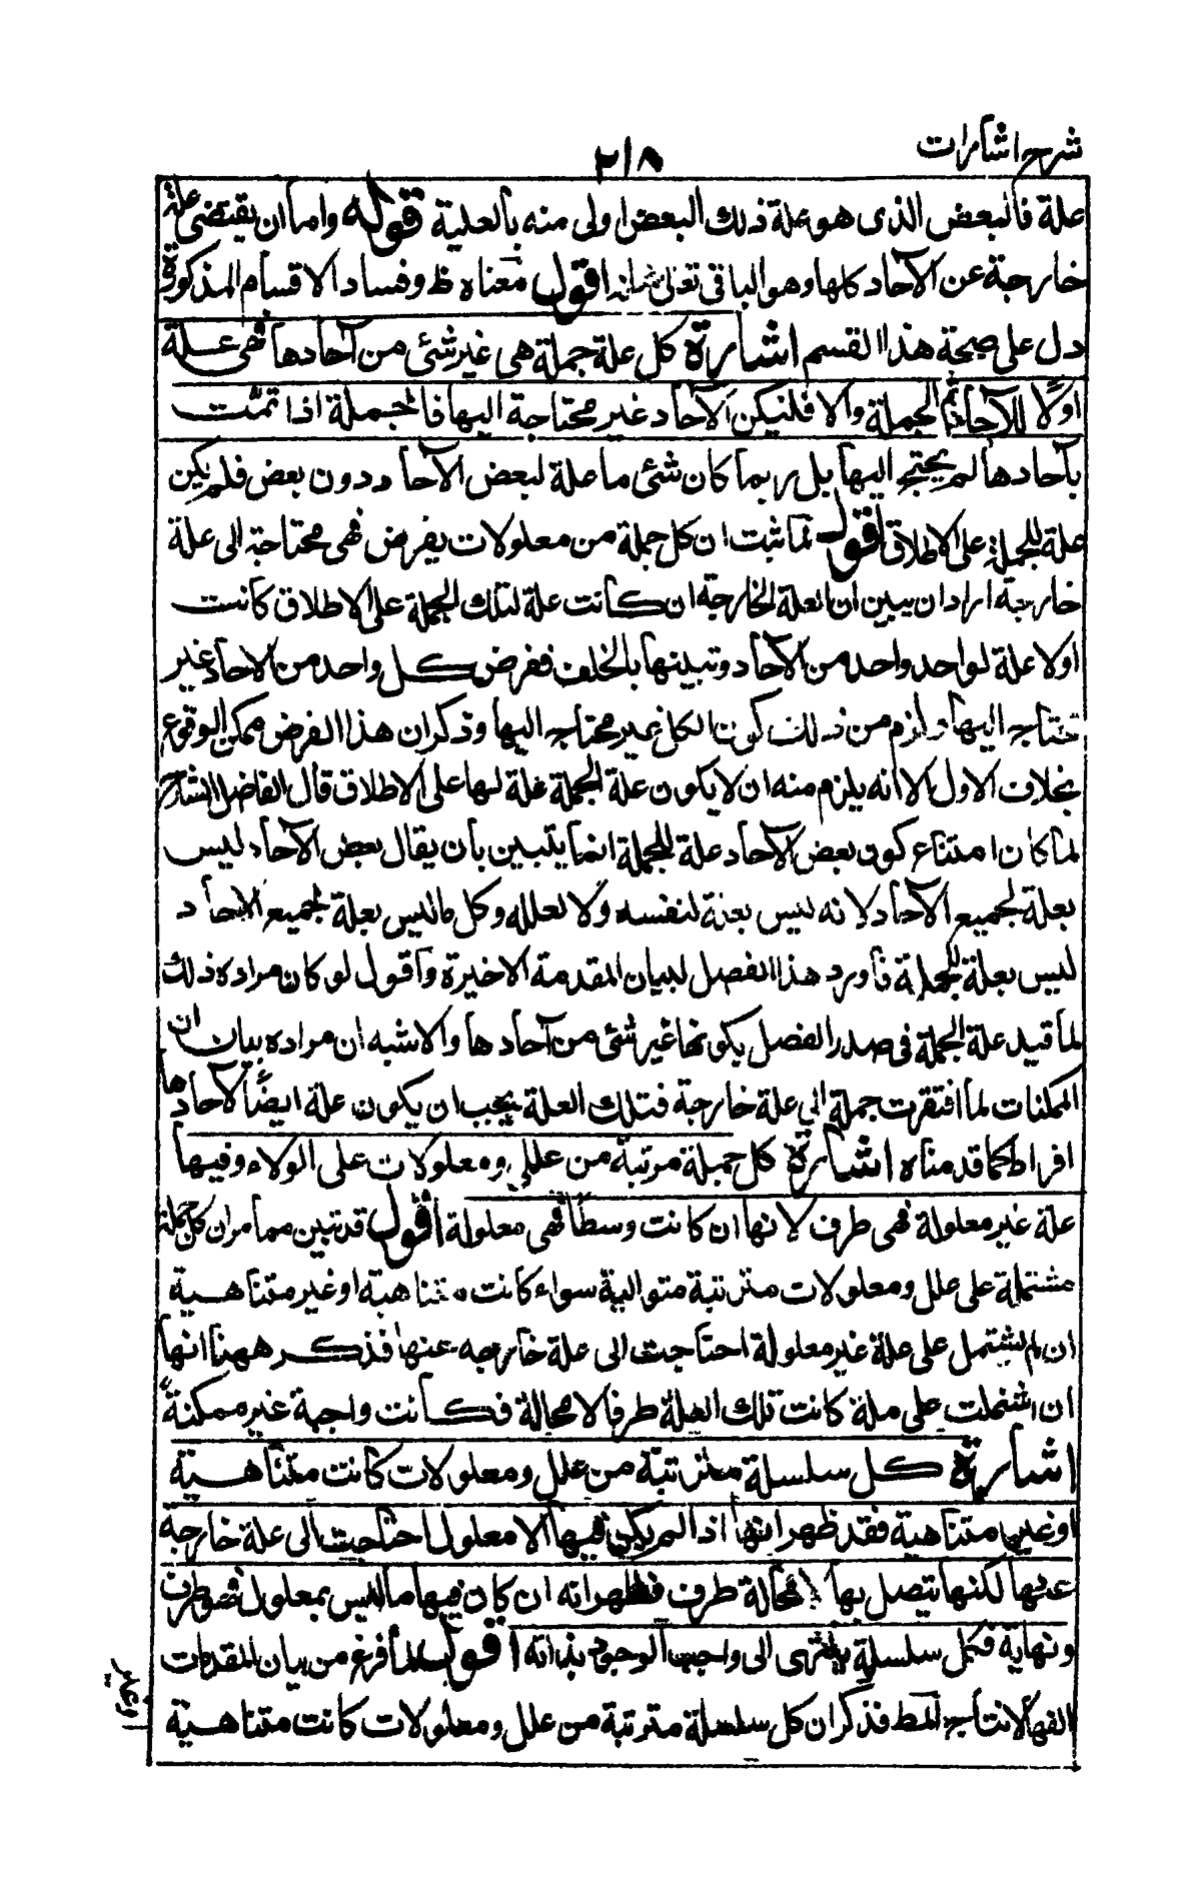 شرح اشارات
٢١٨
علة فالبعض الذى هو علة ذلك البعض اولى منه بالعلية قوله واما ان يقتضى علة
خارجة عن الآحاد كلها وهو الباقى اقول معناه ظ وفساد الاقسام المذكورة
دل على صحة هذا القسم اشارة كل علة جملة هى غير شئ من آحادها فهى علة
اولا للآحاد ثم الجملة والا فليكن الآحاد غير محتاجة اليها فالجملة اذا تمت
بآحادها لم يحتج اليها بل ربما كان شئ ما علة لبعض الآحاد دون بعض فلم يكن
علة للجملة على الاطلاق اقول لما ثبت ان كل جملة من معلولات يفرض فهى محتاجة الى علة
خارجة اراد ان يبين ان العلة الخارجة ان كانت علة لتلك الجملة على الاطلاق كانت
اولا علة لواحد واحد من الآحاد وتبينها بالخلف ففرض كل واحد من الآحاد غير
محتاجه اليها ولزم من ذلك كون الكل غير محتاجه اليها وذكر ان هذا الفرض ممكن الوقوع
بخلاف الاول الا انه يلزم منه ان لا يكون علة الجملة علة لها على الاطلاق قال الفاضل الشارح
لما كان امتناع كون بعض الآحاد علة للجملة انما يتبين بان يقال بعض الآحاد ليس
بعلة لجميع الآحاد لانه ليس بعلة لنفسه ولا لعلله وكل ما ليس بعلة لجميع الآحاد
ليس بعلة للجملة فاورد هذا الفصل لبيان المقدمة الاخيرة واقول لو كان مراده ذلك
لما قيد علة الجملة فى صدر الفصل بكونها غير شئ من آحادها والاشبه ان مراده بيان ان
الممكنات لما افتقرت جملة الى علة خارجة فتلك العلة يجب ان يكون علة ايضًا لآحادها
افراطكما قدمناه اشارة كل جملة مرتبة من علل ومعلولات على الولاء وفيها
علة غير معلولة فهى طرف لانها ان كانت وسطًا فهى معلولة اقول قد تبين مما مر ان كل جملة
مشتملة على علل ومعلولات مترتبة متوالية سواء كانت متناهية او غير متناهية
ان لم يشتمل على علة غير معلولة احتاجت الى علة خارجه عنها فذكر ههنا انها
ان اشتملت على علة كانت تلك العلة طرفا لا محالة فكانت واجبة غير ممكنة
اشارة كل سلسلة مترتبة من علل ومعلولات كانت متناهية
او غير متناهية فقد ظهر انها اذا لم يكن فيها الا معلول احتاجت الى علة خارجة
عنها لكنها يتصل بها لا محالة طرف فظهر انه ان كان فيها ما ليس بمعلول فهو طرف
ونهاية فكل سلسلة ينتهى الى واجب الوجود بذاته اقول لما فرغ من بيان المقدمات
الفها لانتاج المط فذكر ان كل سلسلة مترتبة من علل ومعلولات كانت متناهية
او غير